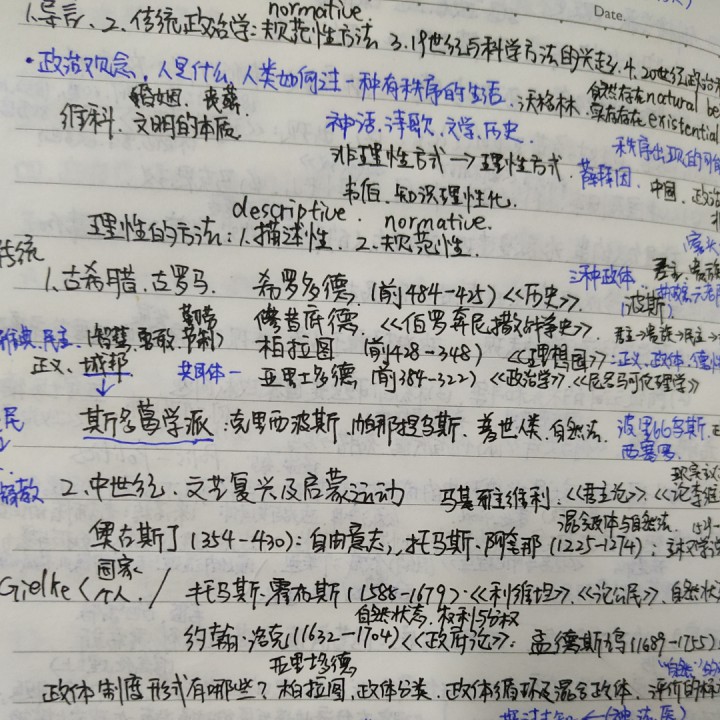 normative
1.导言、2.传统政治学：规范性方法 3.19世纪与科学方法的兴起、4.20世纪政治科
Date.
·政治观念，人是什么，人类如何过上一种有秩序的生活、沃格林、自然存在natural be
婚姻、丧葬
实存存在existential
维科、文明的本质
神话、诗歌、文学、历史
秩序出现的可能
非理性方式→理性方式
韦伯、知识理性化
中国、政治
descriptive. normative.
理性的方法：1.描述性、2.规范性.
传统
1.古希腊、古罗马、希罗多德、(前484-425)《历史》、
三种政体 君主、贵族
(波斯)
修昔底德、《伯罗奔尼撒战争史》、君主→贵族→民主→
民主、(智慧、勇敢、节制) 柏拉图 (前428-348) 《理想国》：正义、政体、德性
正义、城邦 共同体一 亚里士多德，(前384-322)《政治学》、《尼各马可伦理学》
民
斯多葛学派、克里西波斯、帕那提乌斯、普世人类、自然法、
波里66乌斯、
西塞罗、
2.中世纪、文艺复兴及启蒙运动 马基雅维利：《君主论》、《论李维
混合政体与自然法、
奥古斯丁(354-430)：自由意志，托马斯·阿奎那(1225-1274)：
Gielke〈国家 个人、/ 托马斯·霍布斯(1588-1679)·《利维坦》、《论公民》、自然状
自然状态、权利与分权
约翰·洛克(1632-1704)《政府论》：孟德斯鸠(1689-1755)
亚里士多德
"自然"的
政体制度形式有哪些？柏拉图、政体分类、政体循环及混合政体、评价的标